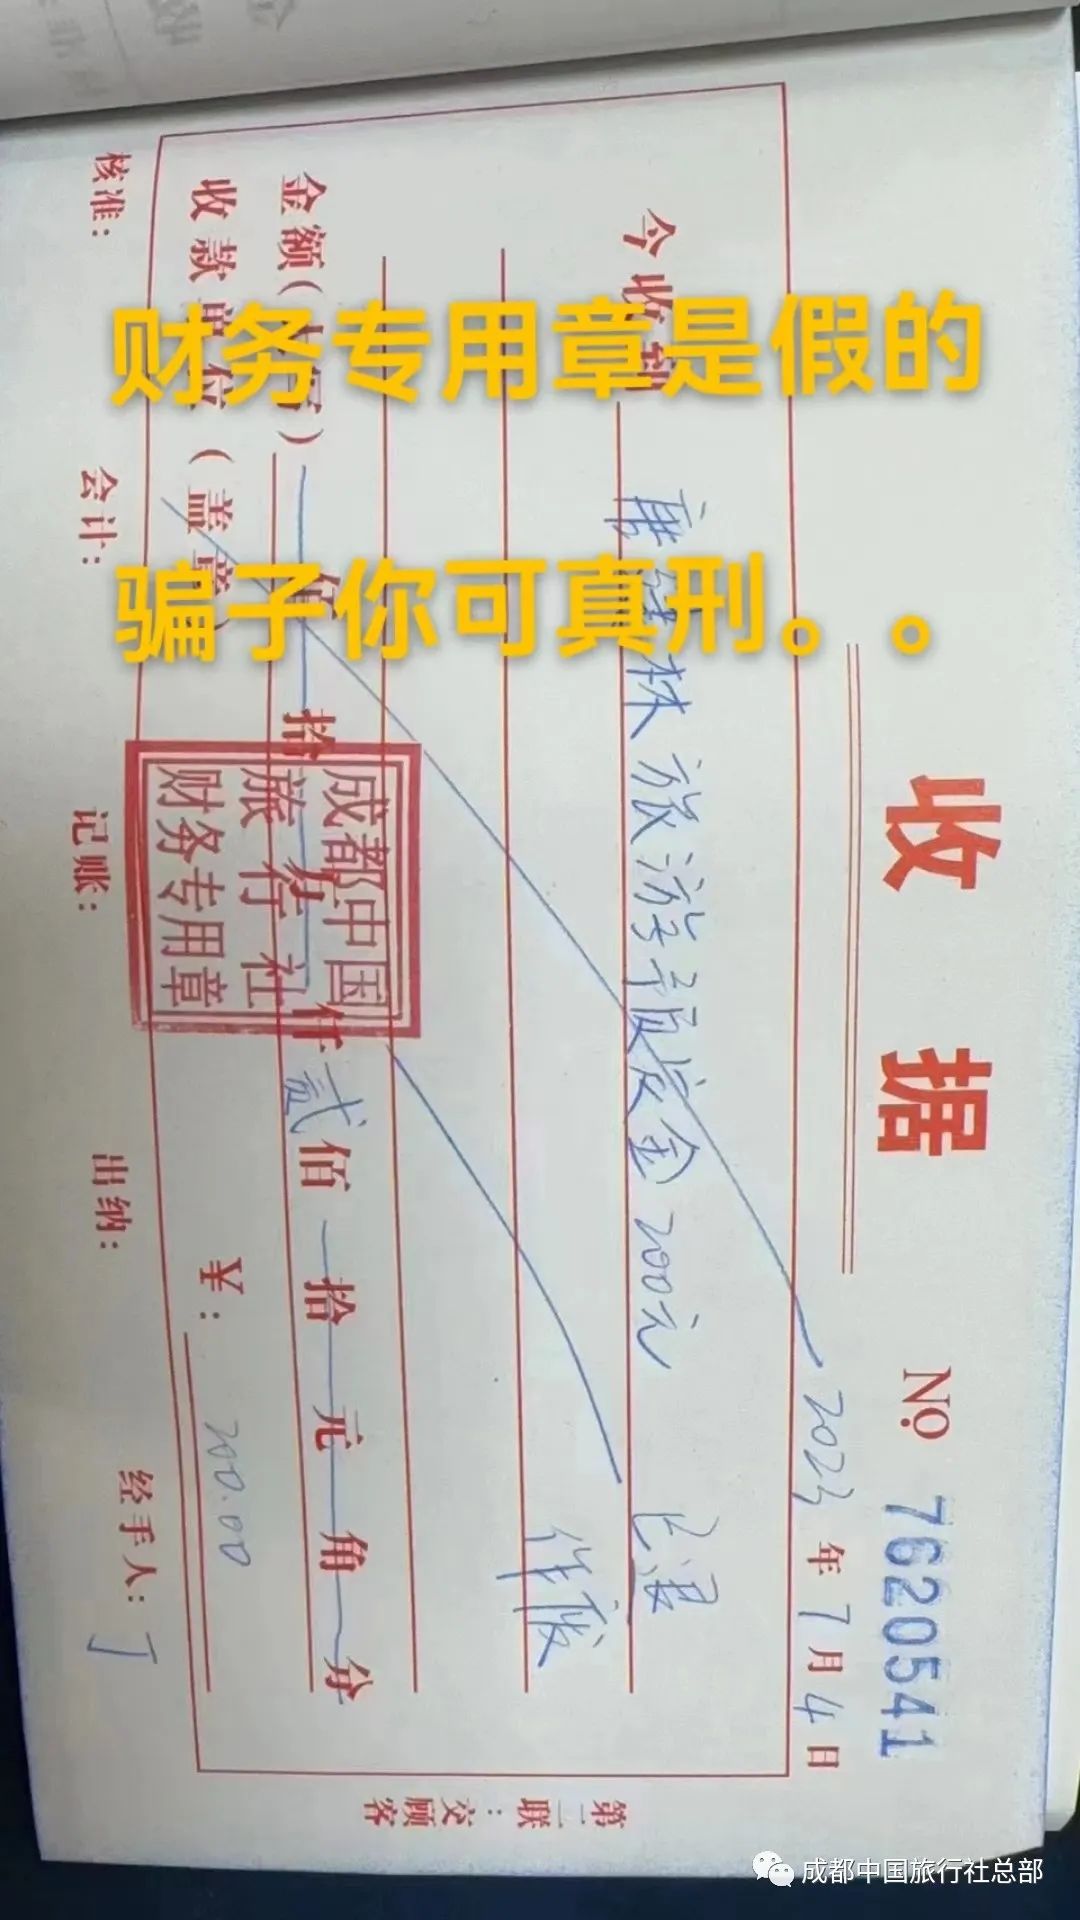 财务专用章是假的
骗子你可真刑。。
收 据
№ 7620541
2023 年 7 月 4 日
今收到 林旅游预定金200元 已退
作废
金额(大写) 佰 拾 万 仟 贰 佰 拾 元 角 分
收款单位(盖章) ¥: 200.00
成都中国
旅行社
财务专用章
核准: 会计: 记账: 出纳: 经手人: 丁
第二联:交顾客
成都中国旅行社总部